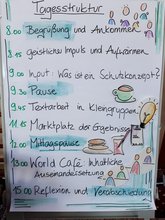 Tagesstruktur
8.00 Begrüßung und Ankommen
8.15 geistlicher Impuls und Aufwärmen
9.00 Input: Was ist ein Schutzkonzept?
9.30 Pause
9.45 Textarbeit in Kleingruppen
11.15 Marktplatz der Ergebnisse
12.00 Mittagspause
13.00 World Café: Inhaltliche
Auseinandersetzung
15.00 Reflexion und Verabschiedung